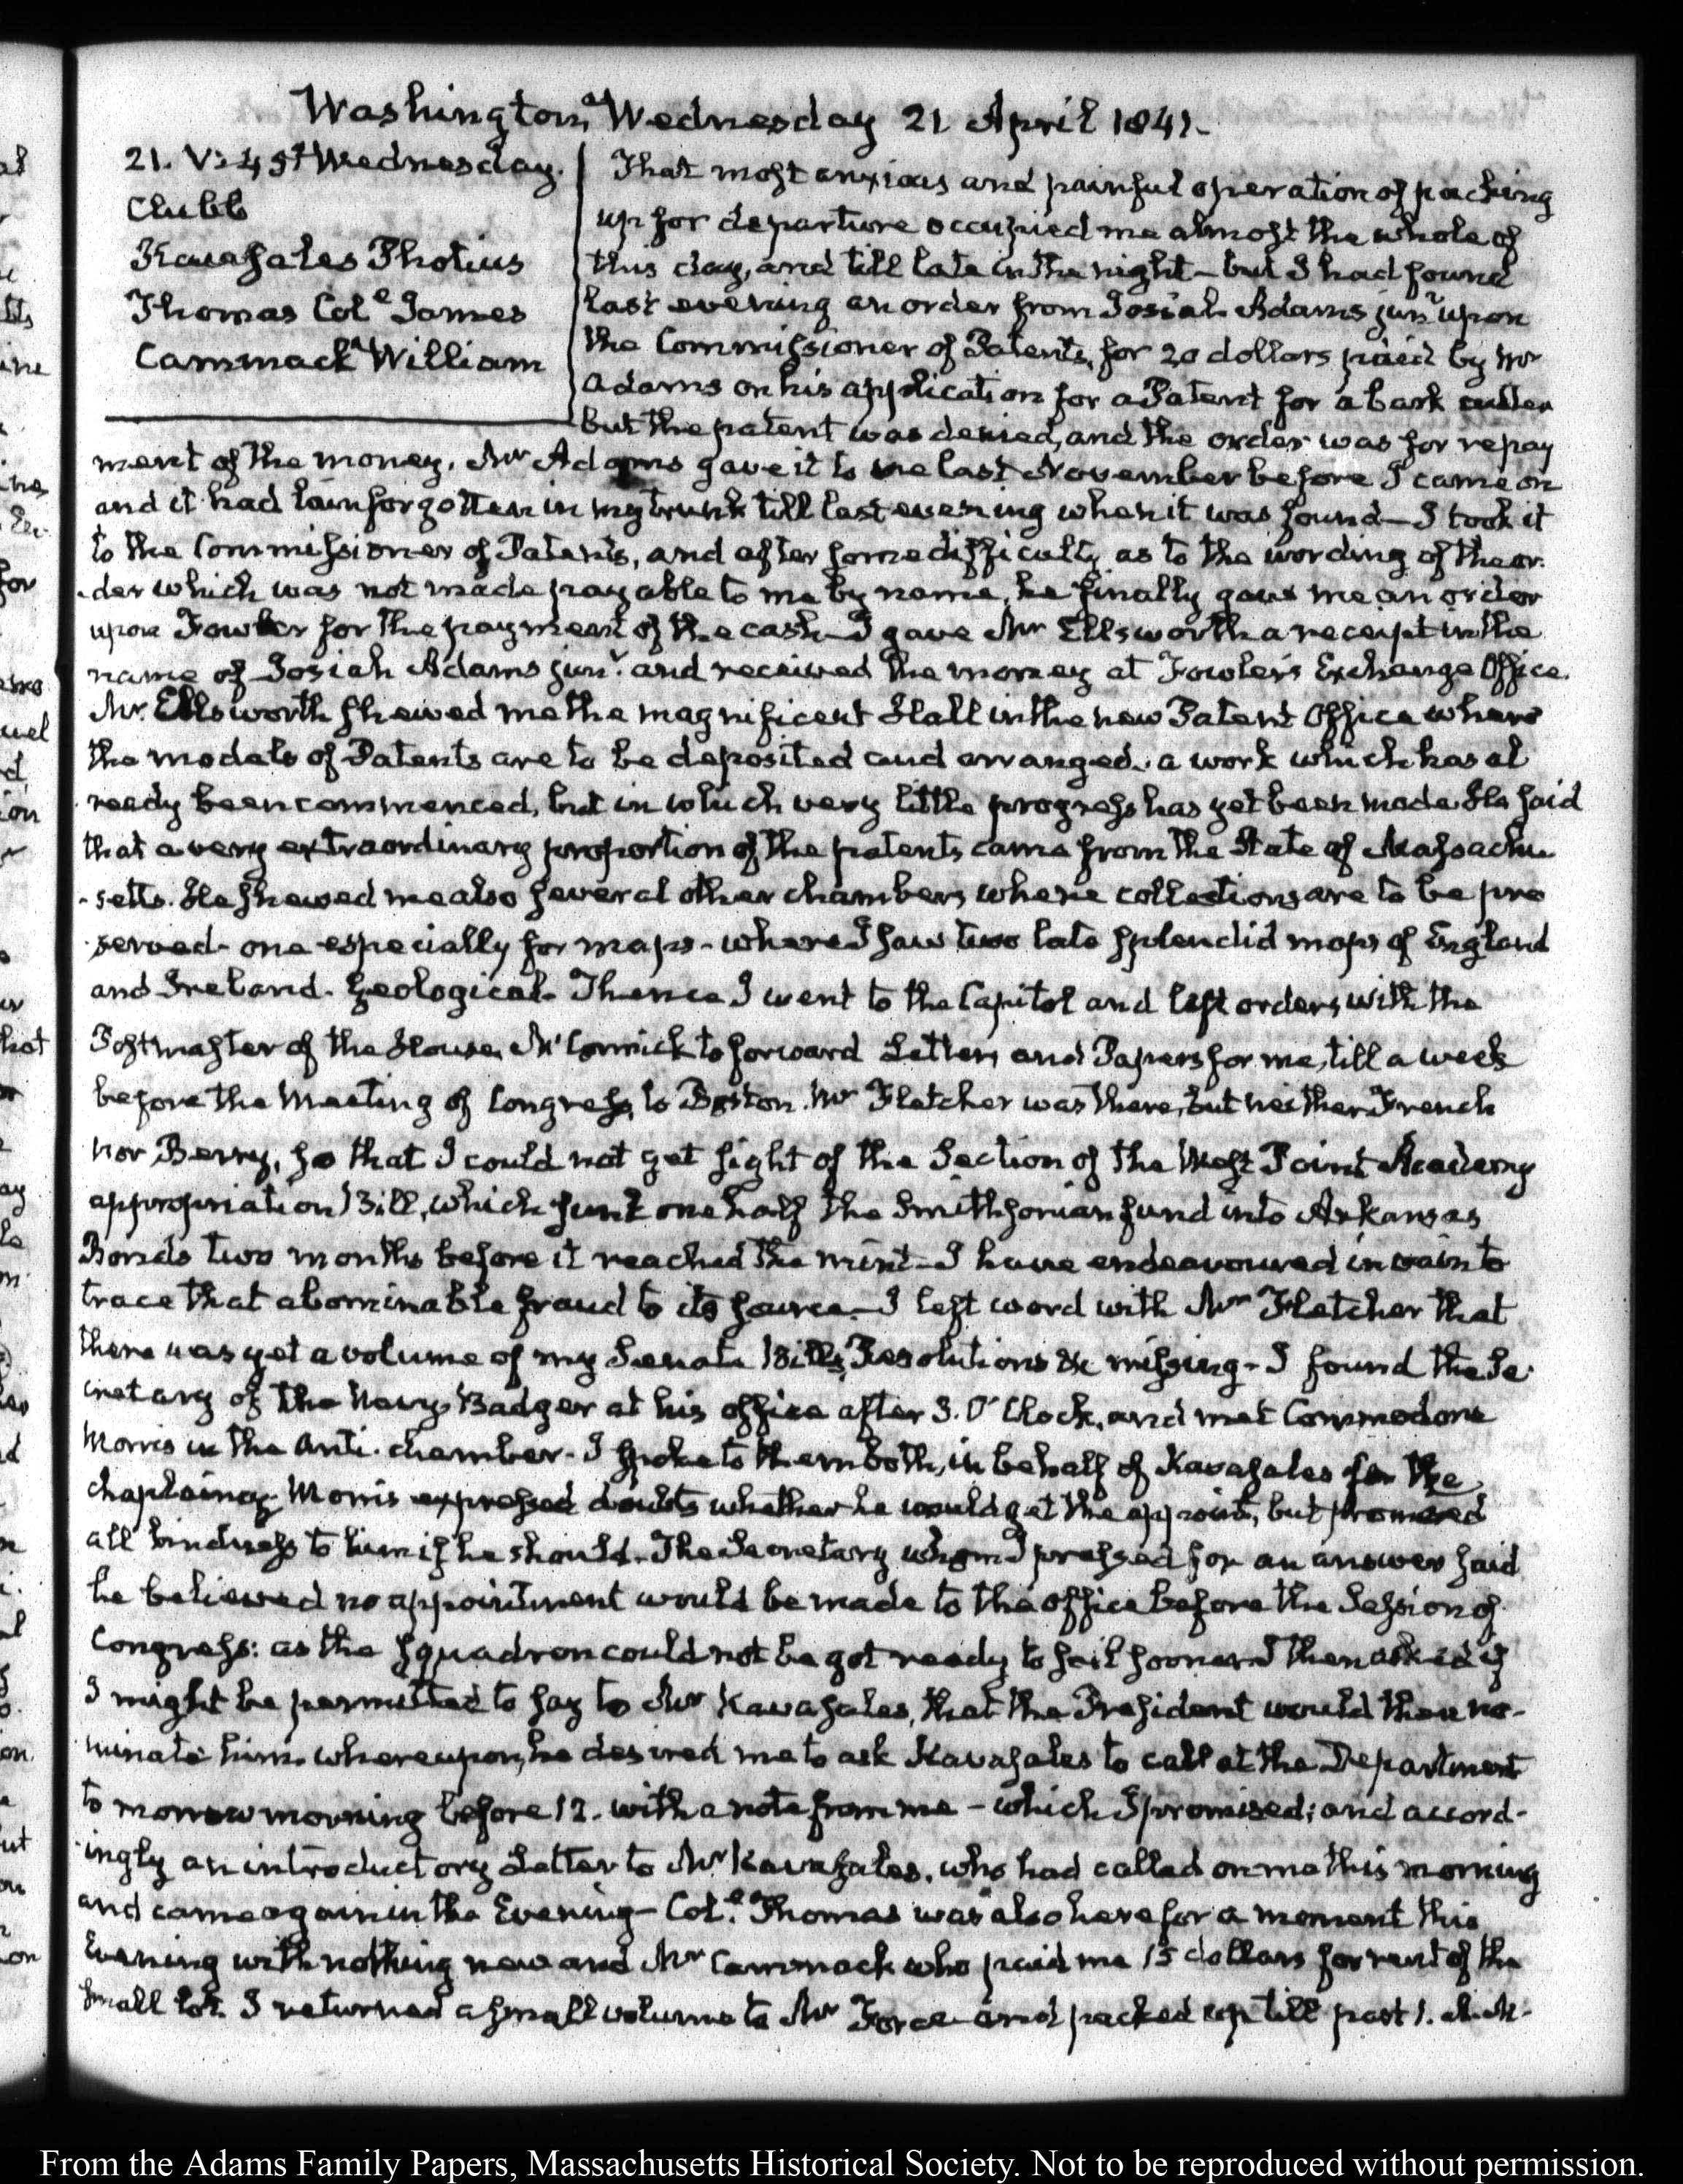 Washington, Wednesday 21 April 1841.
21. V:45. Wednesday.
Clubb
Kavasales Photius
Thomas Cole. James
Cammack William
That most anxious and painful operation of packing
up for departure occupied me almost the whole of
this day, and till late in the night – but I had found
last evening an order from Josiah Adams junr upon
the Commissioner of Patents, for 20 dollars paid by Mr
Adams on his application for a Patent for a bark cutter
but the patent was denied, and the order was for repay
ment of the money. Mr Adams gave it to me last November before I came on
and it had lain forgotten in my trunk till last evening when it was found – I took it
to the Commissioner of Patents, and after some difficulty as to the wording of the or
-der which was not made payable to me by name, he finally gave me an order
upon Fowler for the payment of the cash – I gave Mr Ellsworth a receipt in the
name of Josiah Adams junr. and received the money at Fowler's Exchange Office.
Mr. Ellsworth shewed me the magnificent Hall in the new Patent Office where
the models of Patents are to be deposited and arranged. a work which has al
ready been commenced, but in which very little progress has yet been made. He said
that a very extraordinary proportion of the patents came from the State of Massachu
-setts. He shewed me also several other chambers where collections are to be pre
served – one especially for maps – where I saw two late splendid maps of England
and Ireland. Geological. Thence I went to the Capitol and left orders with the
Postmaster of the House, McCormick to forward Letters and Papers for me, till a week
before the Meeting of Congress, to Boston. Mr Fletcher was there, but neither French
nor Berry, so that I could not get sight of the Section of the West Point Academy
appropriation Bill, which sunk one half the Smithsonian fund into Arkansas
Bonds two months before it reached the mint – I have endeavoured in vain to
trace that abominable fraud to its source – I left word with Mr Fletcher that
there was yet a volume of my Senate Bills, Resolutions &c missing – I found the Se
cretary of the Navy, Badger at his office after 3. O'Clock, and met Commodore
Morris in the Anti-chamber – I spoke to them both, in behalf of Kavasales for the
chaplaincy – Morris expressed doubts whether he would get the appoint, but promised
all kindness to him if he should. The Secretary whom I pressed for an answer said
he believed no appointment would be made to the office before the Session of
Congress: as the squadron could not be got ready to sail sooner. I then asked if
I might be permitted to say to Mr Kavasales, that the President would then no-
minate him. whereupon, he desired me to ask Kavasales to call at the Department
to morrow morning before 12. with a note from me – which I promised; and accord-
ingly an introductory Letter to Mr Kavasales. who had called on me this morning
and came again in the Evening – Cole. Thomas was also here for a moment this
Evening with nothing new and Mr Cammack who paid me 15 dollars for rent of the
small lot. I returned a small volume to Mr Force and packed up till past 1. A.M.
From the Adams Family Papers, Massachusetts Historical Society. Not to be reproduced without permission.